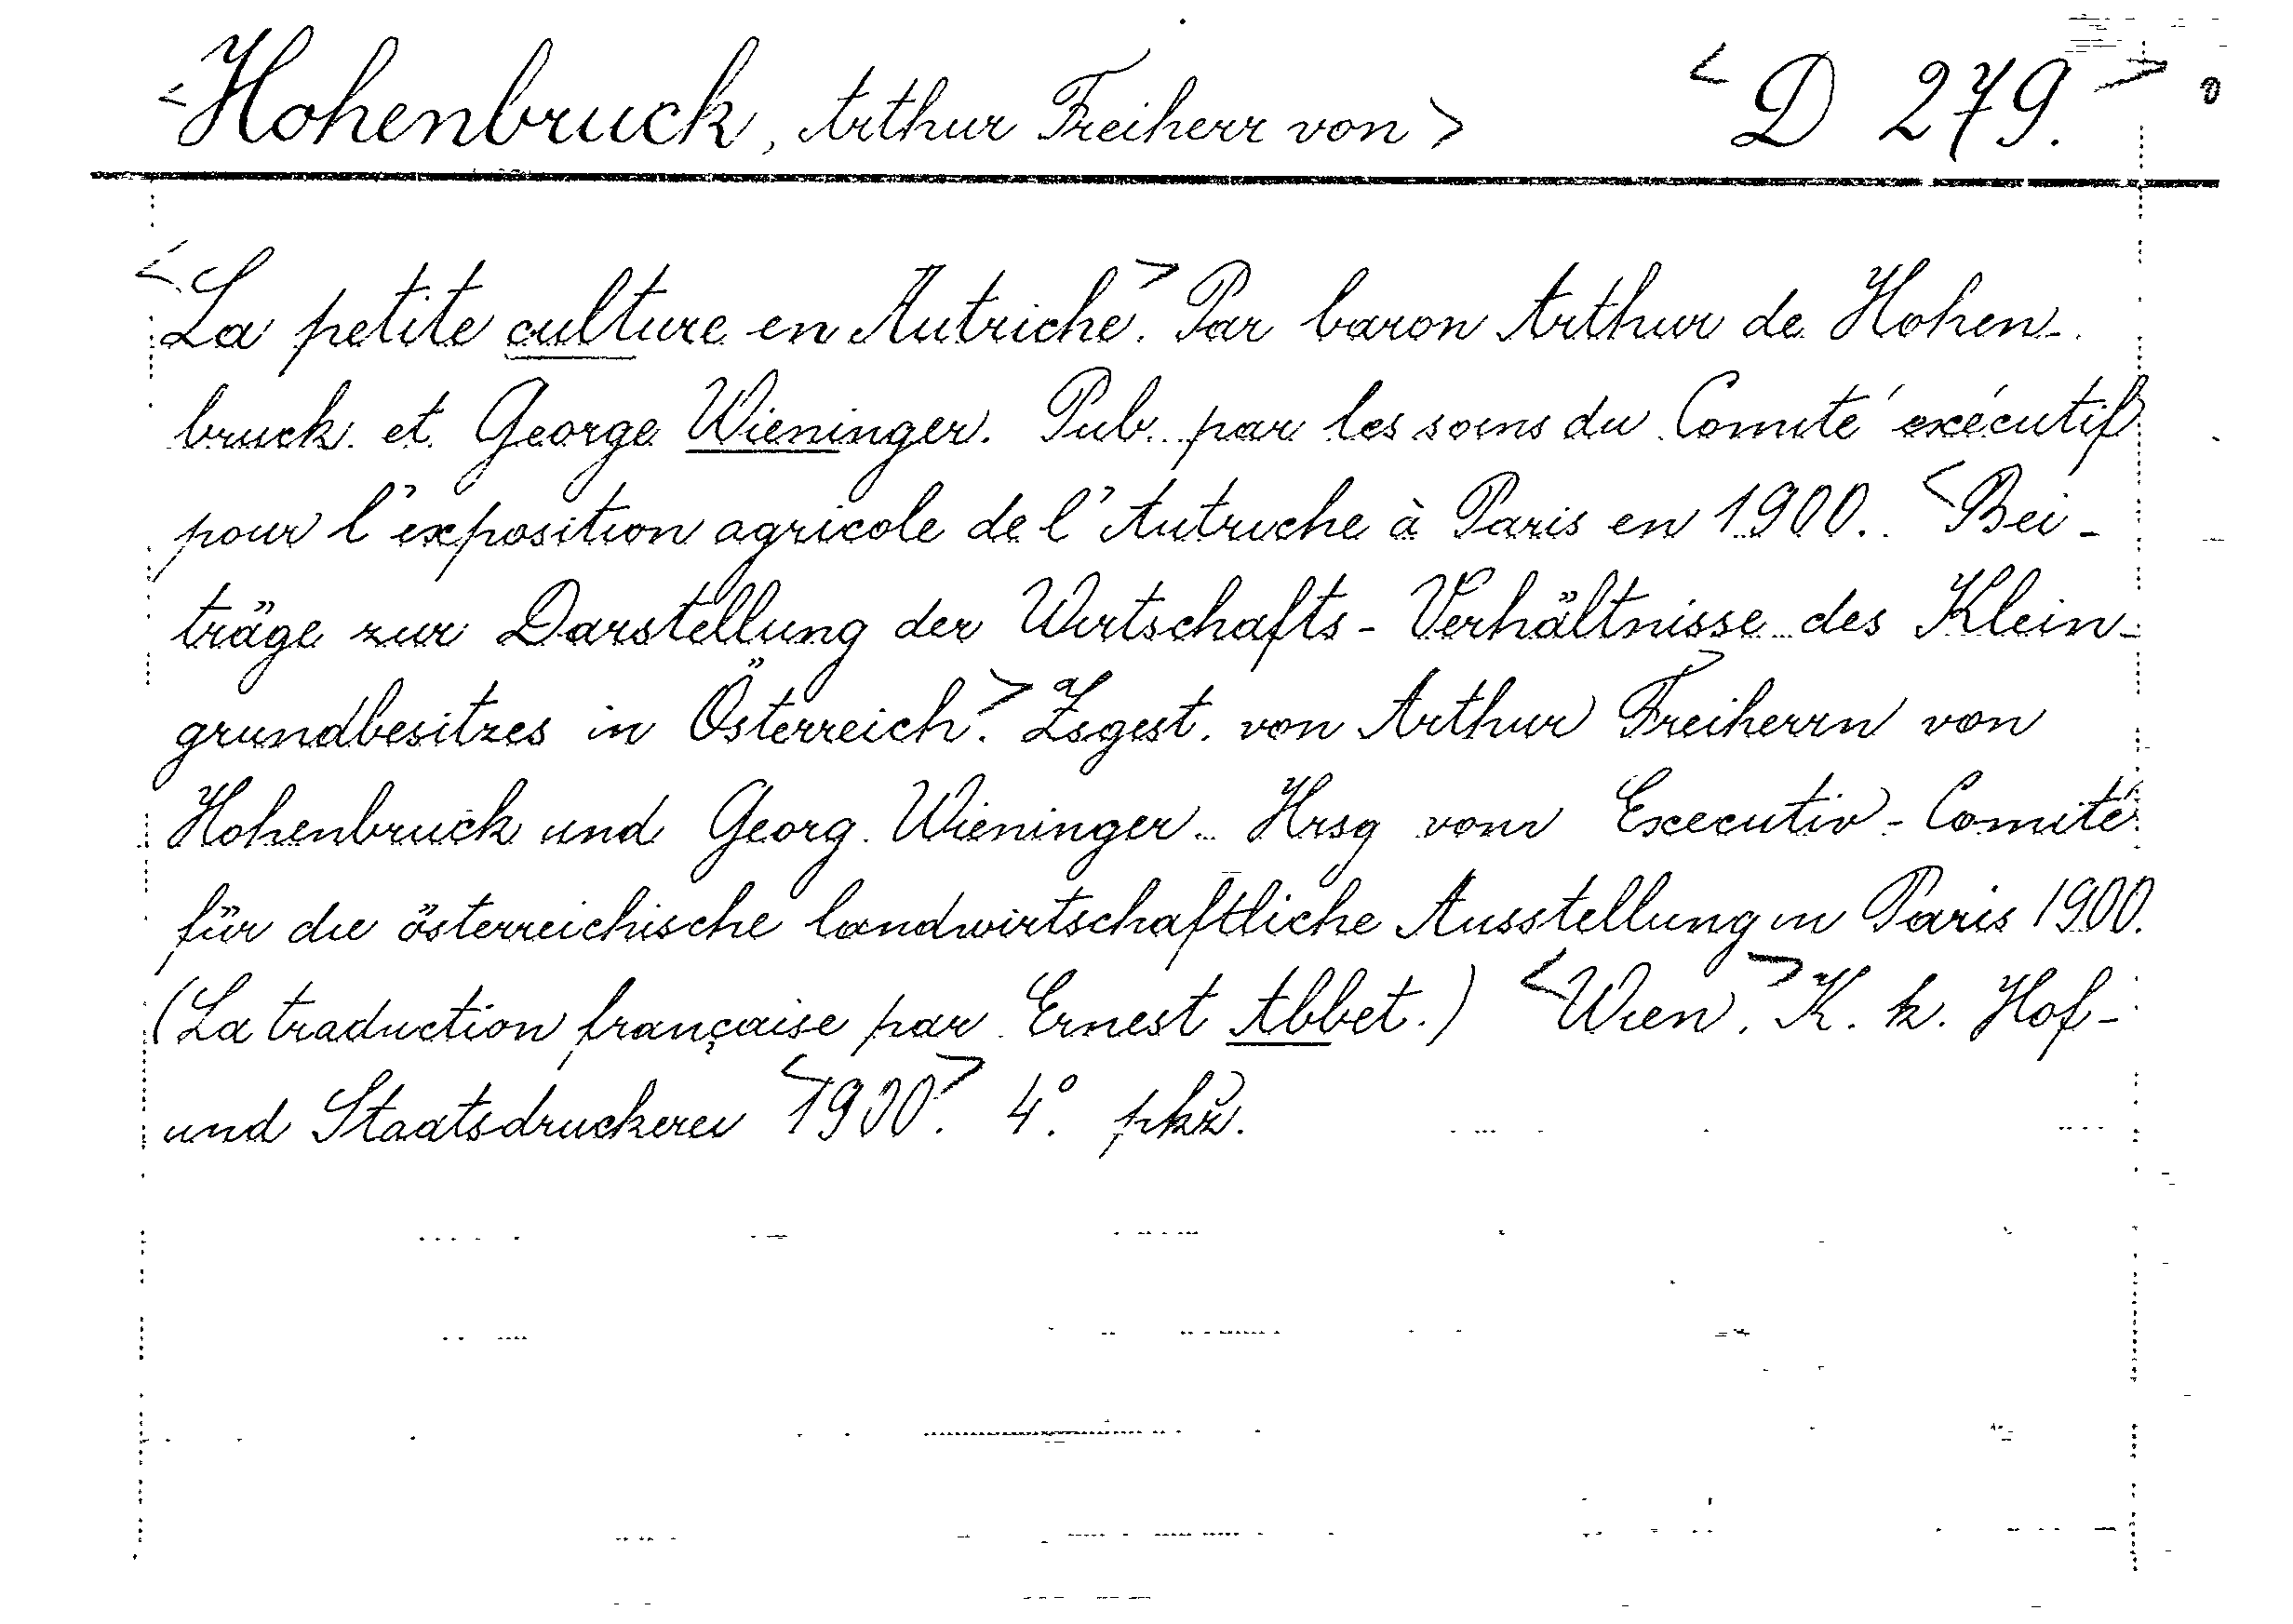 <Hohenbruck, Arthur Freiherr von> <D 279.>
<La petite culture en Autriche.> Par baron Arthur de Hohen-
bruck et George Wieninger. Pub. par les soins du Comité exécutif
pour l'exposition agricole de l'Autriche à Paris en 1900. <Bei-
träge zur Darstellung der Wirtschafts-Verhältnisse des Klein-
grundbesitzes in Österreich.> Zsgest. von Arthur Freiherrn von
Hohenbruck und Georg Wieninger. Hrsg vom Executiv-Comité
für die österreichische landwirtschaftliche Ausstellung in Paris 1900.
(La traduction française par Ernest Abbet.) <Wien,> K. k. Hof-
und Staatsdruckerei <1900.> 4°.